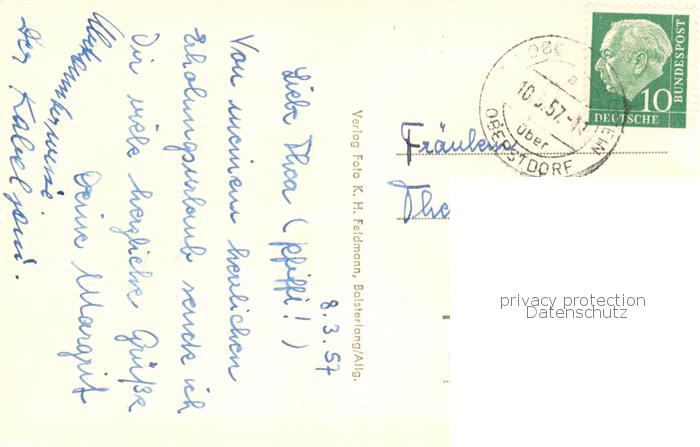 8.3.57
Liebe Thea (pfiffi!)
Von meinem herrlichen
Erholungsurlaub sende ich
Dir viele herzliche Grüße
Deine Margrit
Der
Verlag Foto K. H. Feldmann, Bolsterlang/Allg.
10
DEUTSCHE
BUNDESPOST
über
OBERSTDORF
Fräulein
The
privacy protection
Datenschutz